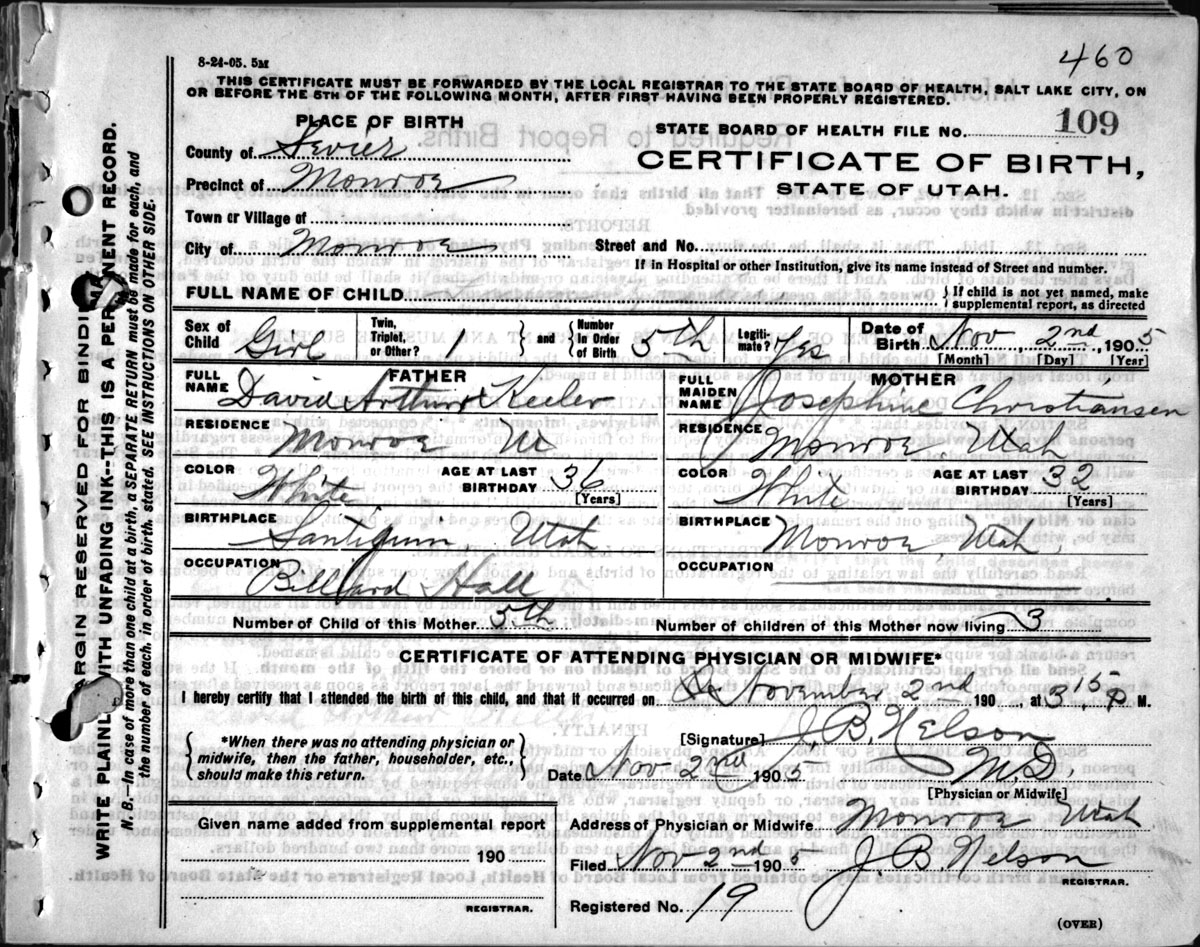 460
8-24-05. 5M
THIS CERTIFICATE MUST BE FORWARDED BY THE LOCAL REGISTRAR TO THE STATE BOARD OF HEALTH, SALT LAKE CITY, ON
OR BEFORE THE 5TH OF THE FOLLOWING MONTH, AFTER FIRST HAVING BEEN PROPERLY REGISTERED.
PLACE OF BIRTH
STATE BOARD OF HEALTH FILE No. 109
County of Sevier
CERTIFICATE OF BIRTH,
STATE OF UTAH.
Precinct of Monroe
Town or Village of
City of Monroe
Street and No.
If in Hospital or other Institution, give its name instead of Street and number.
FULL NAME OF CHILD
} If child is not yet named, make
supplemental report, as directed
Sex of Child Girl
Twin, Triplet, or Other?
} and {
Number In Order of Birth 5th
Legiti-mate? Yes
Date of Birth Nov 2nd, 1905
[Month] [Day] [Year]
FATHER
FULL NAME David Arthur Keeler
MOTHER
FULL MAIDEN NAME Josephine Christiansen
RESIDENCE Monroe Ut
RESIDENCE Monroe, Utah
COLOR White
AGE AT LAST BIRTHDAY 36
[Years]
COLOR White
AGE AT LAST BIRTHDAY 32
[Years]
BIRTHPLACE Santiquin Utah
BIRTHPLACE Monroe, Utah,
OCCUPATION Billiard Hall
OCCUPATION
Number of Child of this Mother 5th
Number of children of this Mother now living 3
CERTIFICATE OF ATTENDING PHYSICIAN OR MIDWIFE*
I hereby certify that I attended the birth of this child, and that it occurred on November 2nd 190 , at 3 15 P M.
{ *When there was no attending physician or
midwife, then the father, householder, etc.,
should make this return. }
[Signature] J. B. Nelson
Date Nov 2nd 1905
M.D.
[Physician or Midwife]
Given name added from supplemental report
190
REGISTRAR.
Address of Physician or Midwife Monroe Utah
Filed Nov 2nd 1905 J. B. Nelson
REGISTRAR.
Registered No. 19
(OVER)
MARGIN RESERVED FOR BINDING
WRITE PLAINLY WITH UNFADING INK--THIS IS A PERMANENT RECORD.
N. B.--In case of more than one child at a birth, a SEPARATE RETURN must be made for each, and
the number of each, in order of birth, stated. SEE INSTRUCTIONS ON OTHER SIDE.